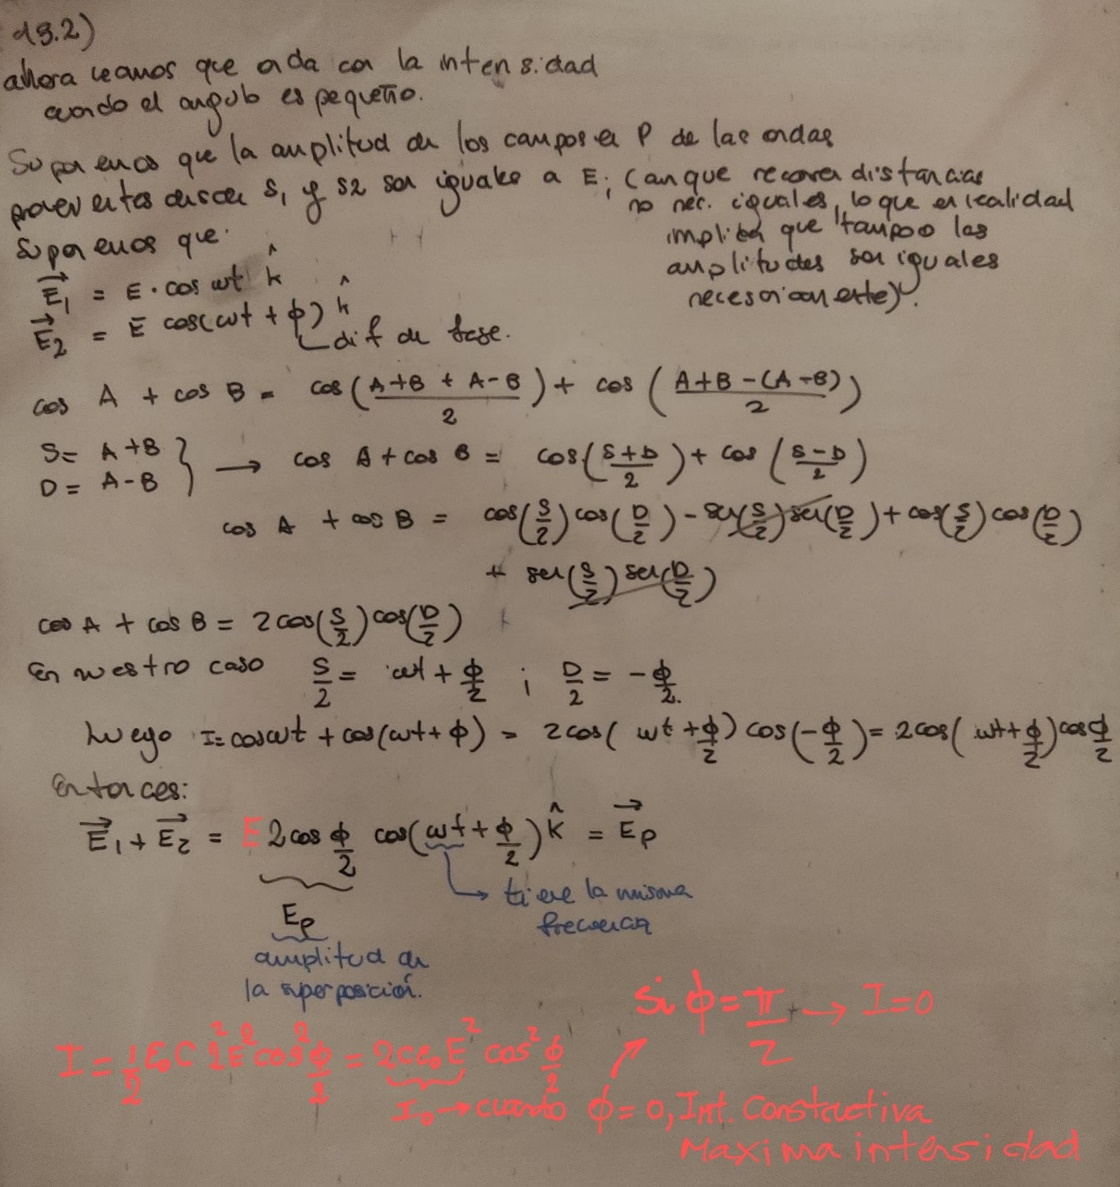 19.2)
ahora veamos que onda con la intensidad
cuando el angulo es pequeño.
Suponemos que la amplitud de los campos en P de las ondas
provenientes desde S₁ y S2 son iguales a E; (aunque recorren distancias
no nec. iguales, lo que en realidad
implica que tampoco las
amplitudes son iguales
necesariamente).
Suponemos que:
\vec{E_1} = E · cos ωt \hat{k}
\vec{E_2} = E cos(ωt + ϕ) \hat{k}
dif de fase.
cos A + cos B = cos(\frac{A+B + A-B}{2}) + cos(\frac{A+B-(A-B)}{2})
S = A+B
D = A-B } → cos A + cos B = cos(\frac{S+D}{2}) + cos(\frac{S-D}{2})
cos A + cos B = cos(\frac{S}{2}) cos(\frac{D}{2}) - sen(\frac{S}{2}) sen(\frac{D}{2}) + cos(\frac{S}{2}) cos(\frac{D}{2})
+ sen(\frac{S}{2}) sen(\frac{D}{2})
cos A + cos B = 2cos(\frac{S}{2}) cos(\frac{D}{2})
En nuestro caso \frac{S}{2} = ωt + \frac{ϕ}{2} ; \frac{D}{2} = -\frac{ϕ}{2}.
Luego I = cosωt + cos(ωt + ϕ) = 2cos(ωt + \frac{ϕ}{2}) cos(-\frac{ϕ}{2}) = 2cos(ωt + \frac{ϕ}{2}) cos\frac{ϕ}{2}
Entonces:
\vec{E_1} + \vec{E_2} = E 2cos \frac{ϕ}{2} cos(ωt + \frac{ϕ}{2}) \hat{k} = \vec{E_P}
→ tiene la misma
frecuencia
E_P
amplitud de
la superposición.
si ϕ = \frac{π}{2} → I = 0
I = \frac{1}{2} ε₀ C 2² E² cos² \frac{ϕ}{2} = 2cε₀E² cos² \frac{ϕ}{2}
I₀ → cuando ϕ = 0, Int. Constactiva
Maxima intensidad